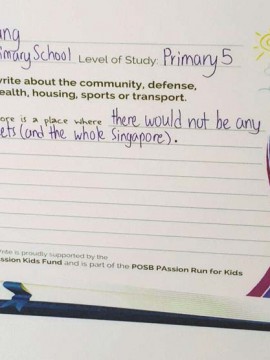 ang
imary School Level of Study: Primary 5
write about the community, defense,
ealth, housing, sports or transport.
ore is a place where there would not be any
ets (and the whole Singapore).
rite is proudly supported by the
ssion Kids Fund and is part of the POSB PAssion Run for Kids